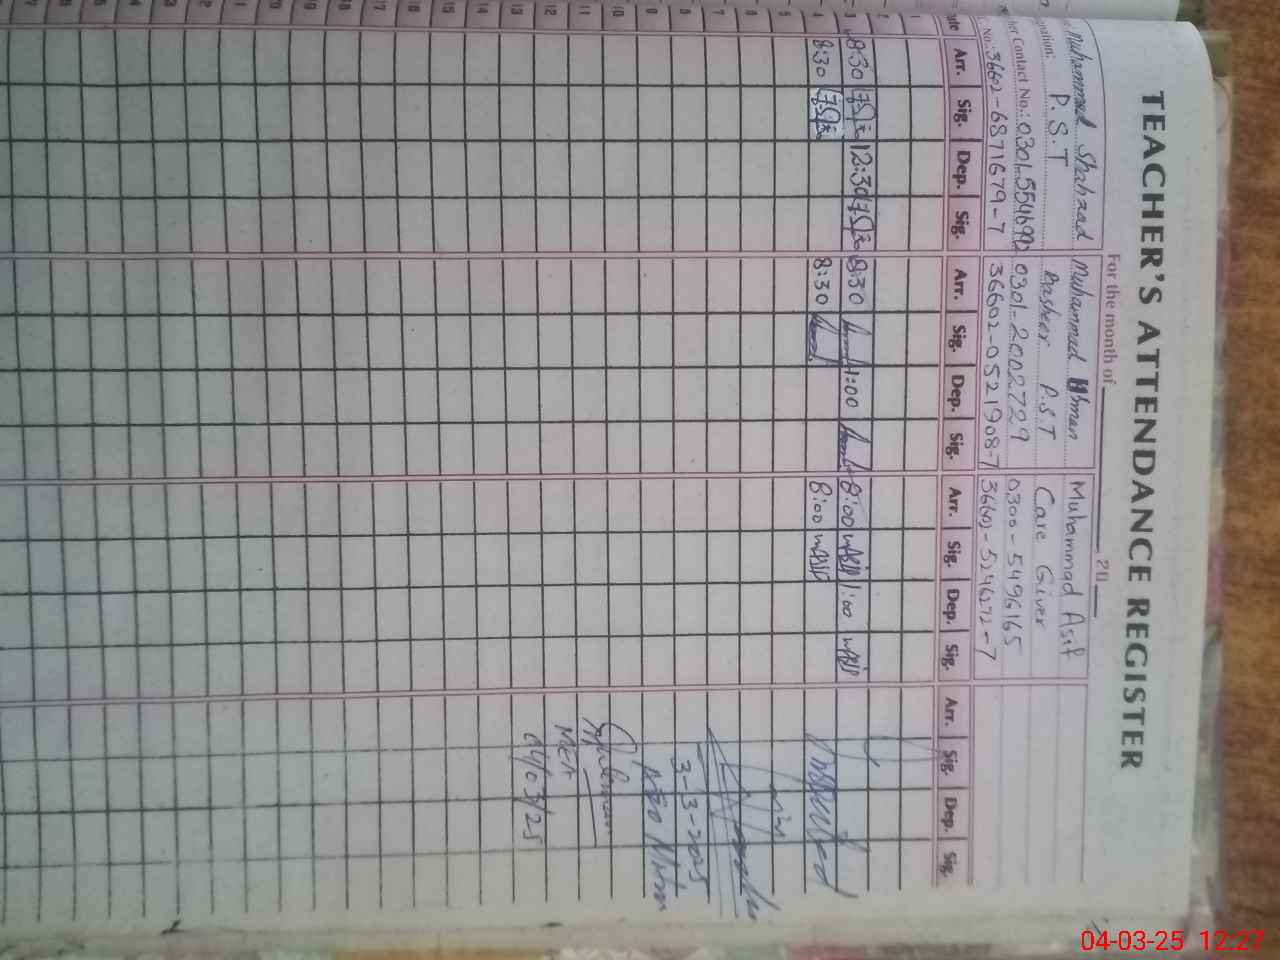 TEACHER'S ATTENDANCE REGISTER
For the month of 20
Muhammad Shahzad Muhammad Usman Muhammad Asif
P.S.T Basheer P.S.T Care Giver
Contact No.: 0301-5546992 0301-2002729 0300-5496165
No.: 36602-6871679-7 36602-0521908-7 36602-5246272-7
Arr. Sig. Dep. Sig. Arr. Sig. Dep. Sig. Arr. Sig. Dep. Sig. Arr. Sig. Dep. Sig.
1
2
3 8:30 12:30 8:30 1:00 8:00 1:00
4 8:30 8:30 8:00
5
6
7
8 3-3-2025
9
10
11
12 MEA
13 04/03/25
14
15
16
17
18
19
04-03-25 12:27